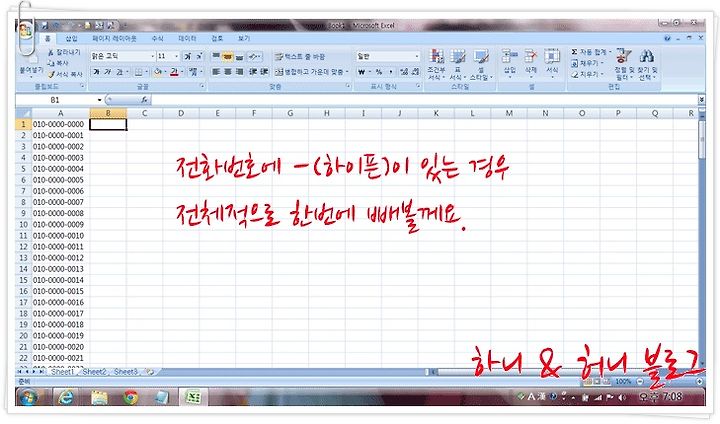 Book1 - Microsoft Excel
홈 삽입 페이지 레이아웃 수식 데이터 검토 보기
붙여넣기 잘라내기 복사 서식 복사
맑은 고딕 11
텍스트 줄 바꿈
병합하고 가운데 맞춤
일반
조건부 서식 표 서식 셀 스타일
삽입 삭제 서식
자동 합계 채우기 지우기
정렬 및 필터 찾기 및 선택
클립보드 글꼴 맞춤 표시 형식 스타일 셀 편집
B1 fx
A B C D E F G H I J K L M N O P Q R
1 010-0000-0000
2 010-0000-0001
3 010-0000-0002
4 010-0000-0003
5 010-0000-0004
6 010-0000-0005
7 010-0000-0006
8 010-0000-0007
9 010-0000-0008
10 010-0000-0009
11 010-0000-0010
12 010-0000-0011
13 010-0000-0012
14 010-0000-0013
15 010-0000-0014
16 010-0000-0015
17 010-0000-0016
18 010-0000-0017
19 010-0000-0018
20 010-0000-0019
21 010-0000-0020
22 010-0000-0021
전화번호에 -(하이픈)이 있는 경우
전체적으로 한번에 빼볼게요.
하니 & 허니 블로그
Sheet1 Sheet2 Sheet3
준비 100%
A 漢 오후 7:08